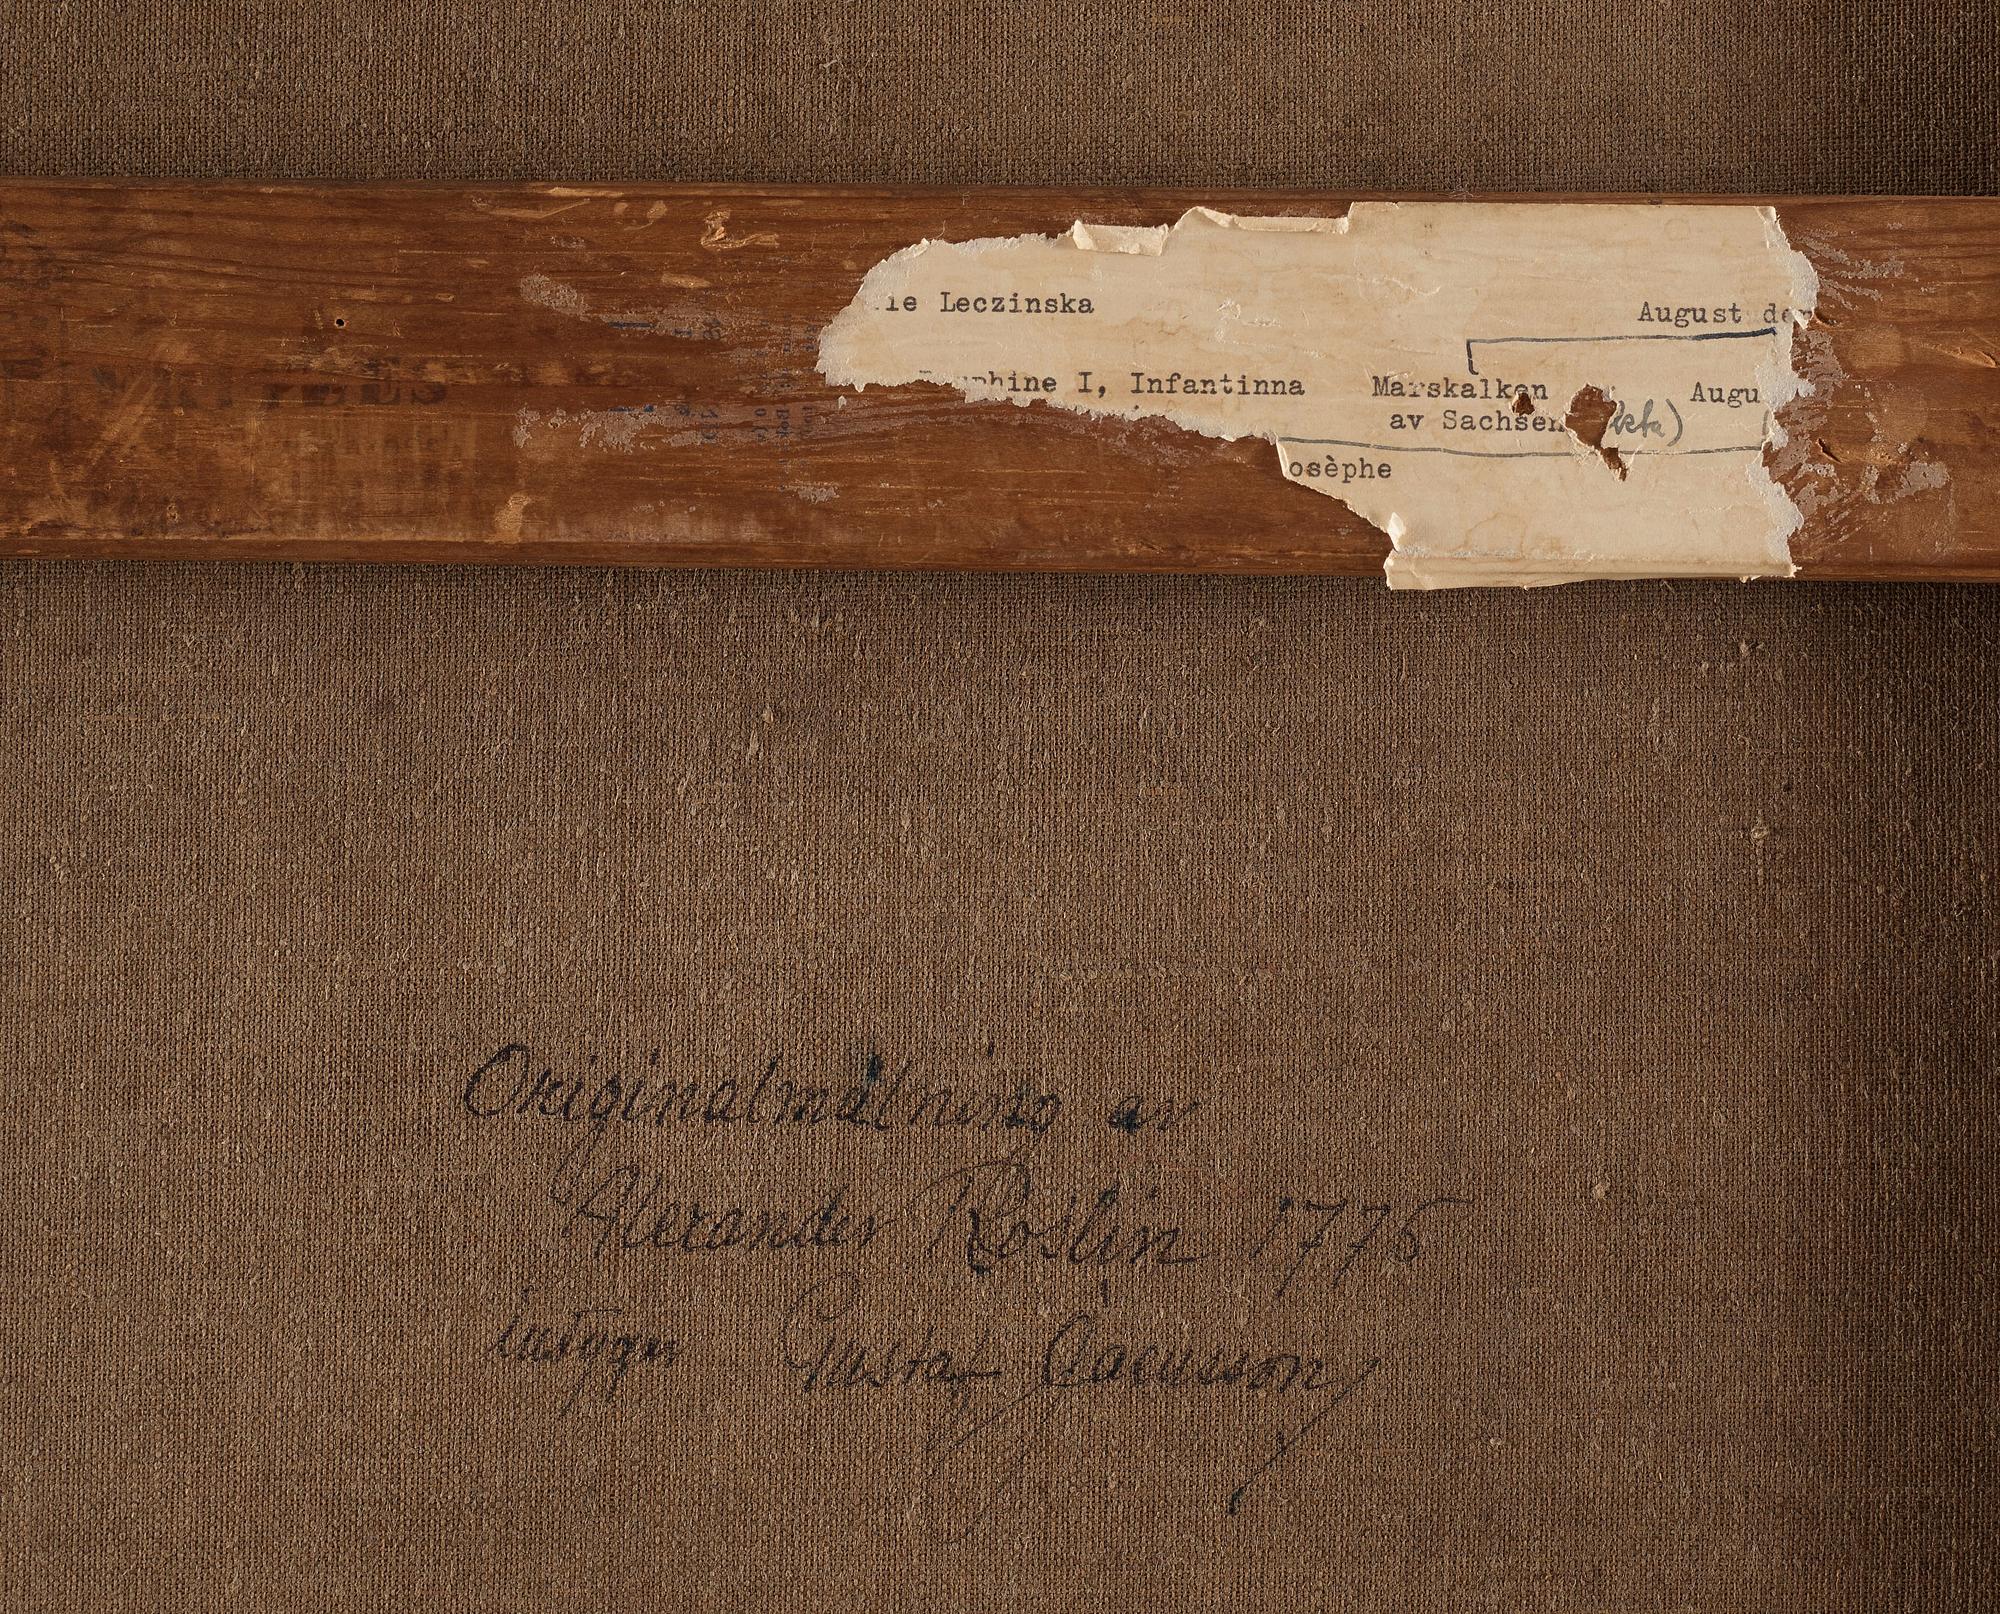 ie Leczinska August der
phine I, Infantinna Marskalken Augu
av Sachsen
osèphe
Originalmålning av
Alexander Roslin 1775
intygar Gustaf